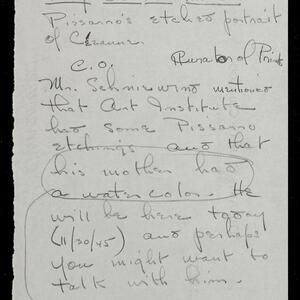 Pissarro's etched portrait
of Cezanne.
C.O.
Curator of Prints
Mr. Schniewind mentioned
that Art Institute
has some Pissarro
etchings and that
his mother had
a water color. He
will be here today
(11/20/45) and perhaps
you might want to
talk with him.